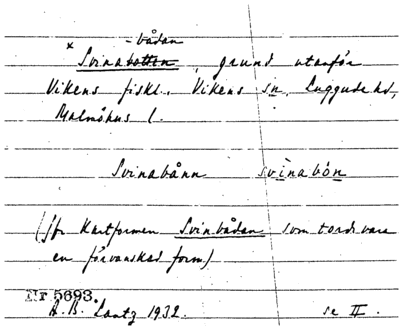 -bådan
× Svinabotten, grund utanför
Vikens fiskl., Vikens sn, Luggude hd,
Malmöhus l.
Svinabånn svinabón
(Jfr Kartformen Svinbådan som torde vara
en förvanskad form)
Nr 5693.
A.B. Lantz 1932. se II.